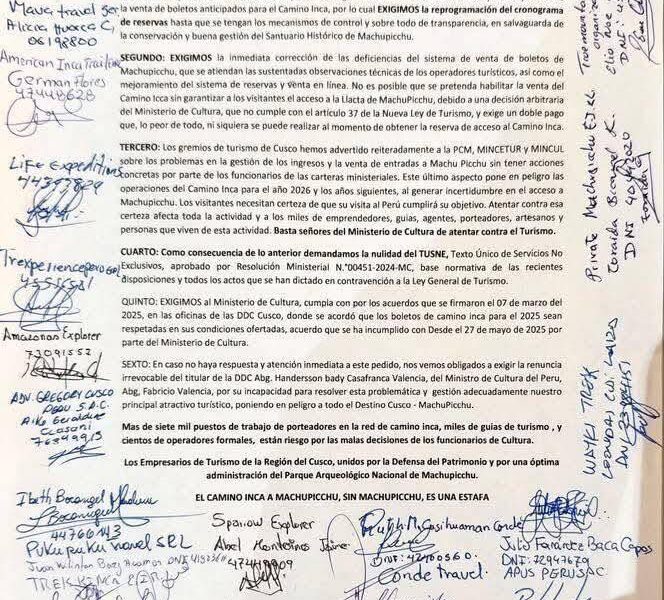 la venta de boletos anticipados para el Camino Inca, por lo cual EXIGIMOS la reprogramación del cronograma
de reservas hasta que se tengan los mecanismos de control y sobre todo de transparencia, en salvaguarda de
la conservación y buena gestión del Santuario Histórico de Machupicchu.
SEGUNDO: EXIGIMOS la inmediata corrección de las deficiencias del sistema de venta de boletos de
Machupicchu, que se atiendan las sustentadas observaciones técnicas de los operadores turísticos, así como el
mejoramiento del sistema de reservas y venta en línea. No es posible que se pretenda habilitar la venta del
Camino Inca sin garantizar a los visitantes el acceso a la Llacta de MachuPicchu, debido a una decisión arbitraria
del Ministerio de Cultura, que no cumple con el artículo 37 de la Nueva Ley de Turismo, y exige un doble pago
que, lo peor de todo, ni siquiera se puede realizar al momento de obtener la reserva de acceso al Camino Inca.
TERCERO: Los gremios de turismo de Cusco hemos advertido reiteradamente a la PCM, MINCETUR y MINCUL
sobre los problemas en la gestión de los ingresos y la venta de entradas a Machu Picchu sin tener acciones
concretas por parte de los funcionarios de las carteras ministeriales. Este último aspecto pone en peligro las
operaciones del Camino Inca para el año 2026 y los años siguientes, al generar incertidumbre en el acceso a
Machupicchu. Los visitantes necesitan certeza de que su visita al Perú cumplirá su objetivo. Atentar contra esa
certeza afecta toda la actividad y a los miles de emprendedores, guias, agentes, porteadores, artesanos y
personas que viven de esta actividad. Basta señores del Ministerio de Cultura de atentar contra el Turismo.
CUARTO: Como consecuencia de lo anterior demandamos la nulidad del TUSNE, Texto Único de Servicios No
Exclusivos, aprobado por Resolución Ministerial N.°00451-2024-MC, base normativa de las recientes
disposiciones y todos los actos que se han dictado en contravención a la Ley General de Turismo.
QUINTO: EXIGIMOS al Ministerio de Cultura, cumpla con por los acuerdos que se firmaron el 07 de marzo del
2025, en las oficinas de las DDC Cusco, donde se acordó que los boletos de camino inca para el 2025 sean
respetadas en sus condiciones ofertadas, acuerdo que se ha incumplido con Desde el 27 de mayo de 2025 por
parte del Ministerio de Cultura.
SEXTO: En caso no haya respuesta y atención inmediata a este pedido, nos vemos obligados a exigir la renuncia
irrevocable del titular de la DDC Abg. Handersson bady Casafranca Valencia, del Ministro de Cultura del Peru,
Abg, Fabricio Valencia, por su incapacidad para resolver esta problemática y gestión adecuadamente nuestro
principal atractivo turístico, poniendo en peligro a todo el Destino Cusco - MachuPicchu.
Mas de siete mil puestos de trabajo de porteadores en la red de camino inca, miles de guias de turismo , y
cientos de operadores formales, están riesgo por las malas decisiones de los funcionarios de Cultura.
Los Empresarios de Turismo de la Región del Cusco, unidos por la Defensa del Patrimonio y por una óptima
administración del Parque Arqueológico Nacional de Machupicchu.
EL CAMINO INCA A MACHUPICCHU, SIN MACHUPICCHU, ES UNA ESTAFA
travel
Alicia Huanca C,
06198800
American Inca Trail
German Flores
47448628
Life Expeditions
Trexperience
Amazonas Explorer
73091552
ADV. GREGORY CUSCO
PERU S.A.C.
Geraldine
Ccasani
76949913
Private Machupicchu E.I.R.L
Zoraida Bocangel K.
DNI
WAYKI TREK
LEONIDAS
DNI
Ibeth Bocangel
44766143
Puku puku travel SRL
Sparrow Explorer
Abel
Ruth M. Ccasihuaman Conde
DNI: 42460560.
Conde travel.
Julio Farantez Baca
DNI: 72947679
APUS PERU SAC.